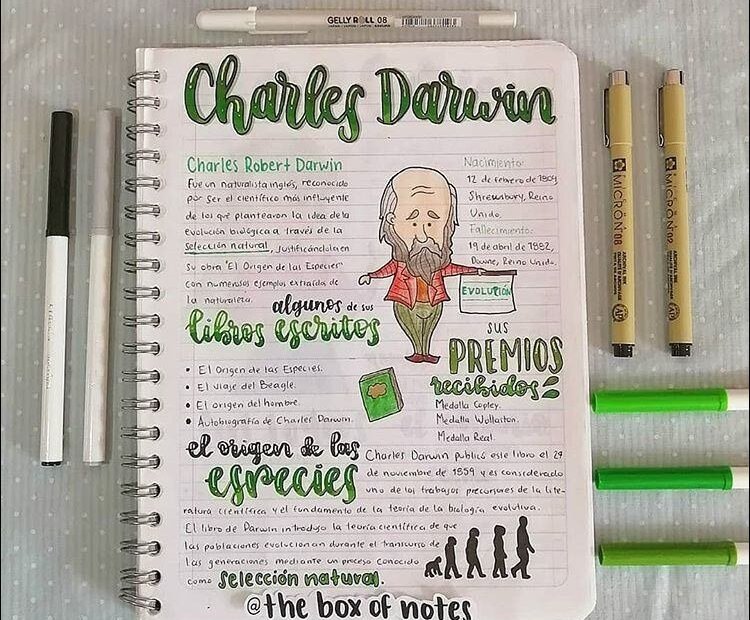 GELLY ROLL 08
Charles Darwin
Charles Robert Darwin
Fue un naturalista inglés, reconocido
por ser el científico más influyente
de los que plantearon la idea de la
evolución biológica a través de la
selección natural, justificándola en
su obra "El Origen de las Especies"
con numerosos ejemplos extraídos de
la naturaleza.
Nacimiento:
12 de febrero de 1809,
Shrewsbury, Reino
Unido.
Fallecimiento:
19 de abril de 1882,
Downe, Reino Unido.
EVOLUCIÓN
algunos de sus
libros escritos
• El Origen de las Especies.
• El Viaje del Beagle.
• El origen del hombre.
• Autobiografía de Charles Darwin.
sus
PREMIOS
recibidos
Medalla Copley.
Medalla Wollaston.
Medalla Real.
el origen de las
especies
Charles Darwin publicó este libro el 24
de noviembre de 1859 y es considerado
uno de los trabajos precursores de la lite-
ratura científica y el fundamento de la teoría de la biología evolutiva.
El libro de Darwin introdujo la teoría científica de que
las poblaciones evolucionan durante el transcurso de
las generaciones mediante un proceso conocido
como selección natural.
@the box of notes
MICRON 08
MICRON